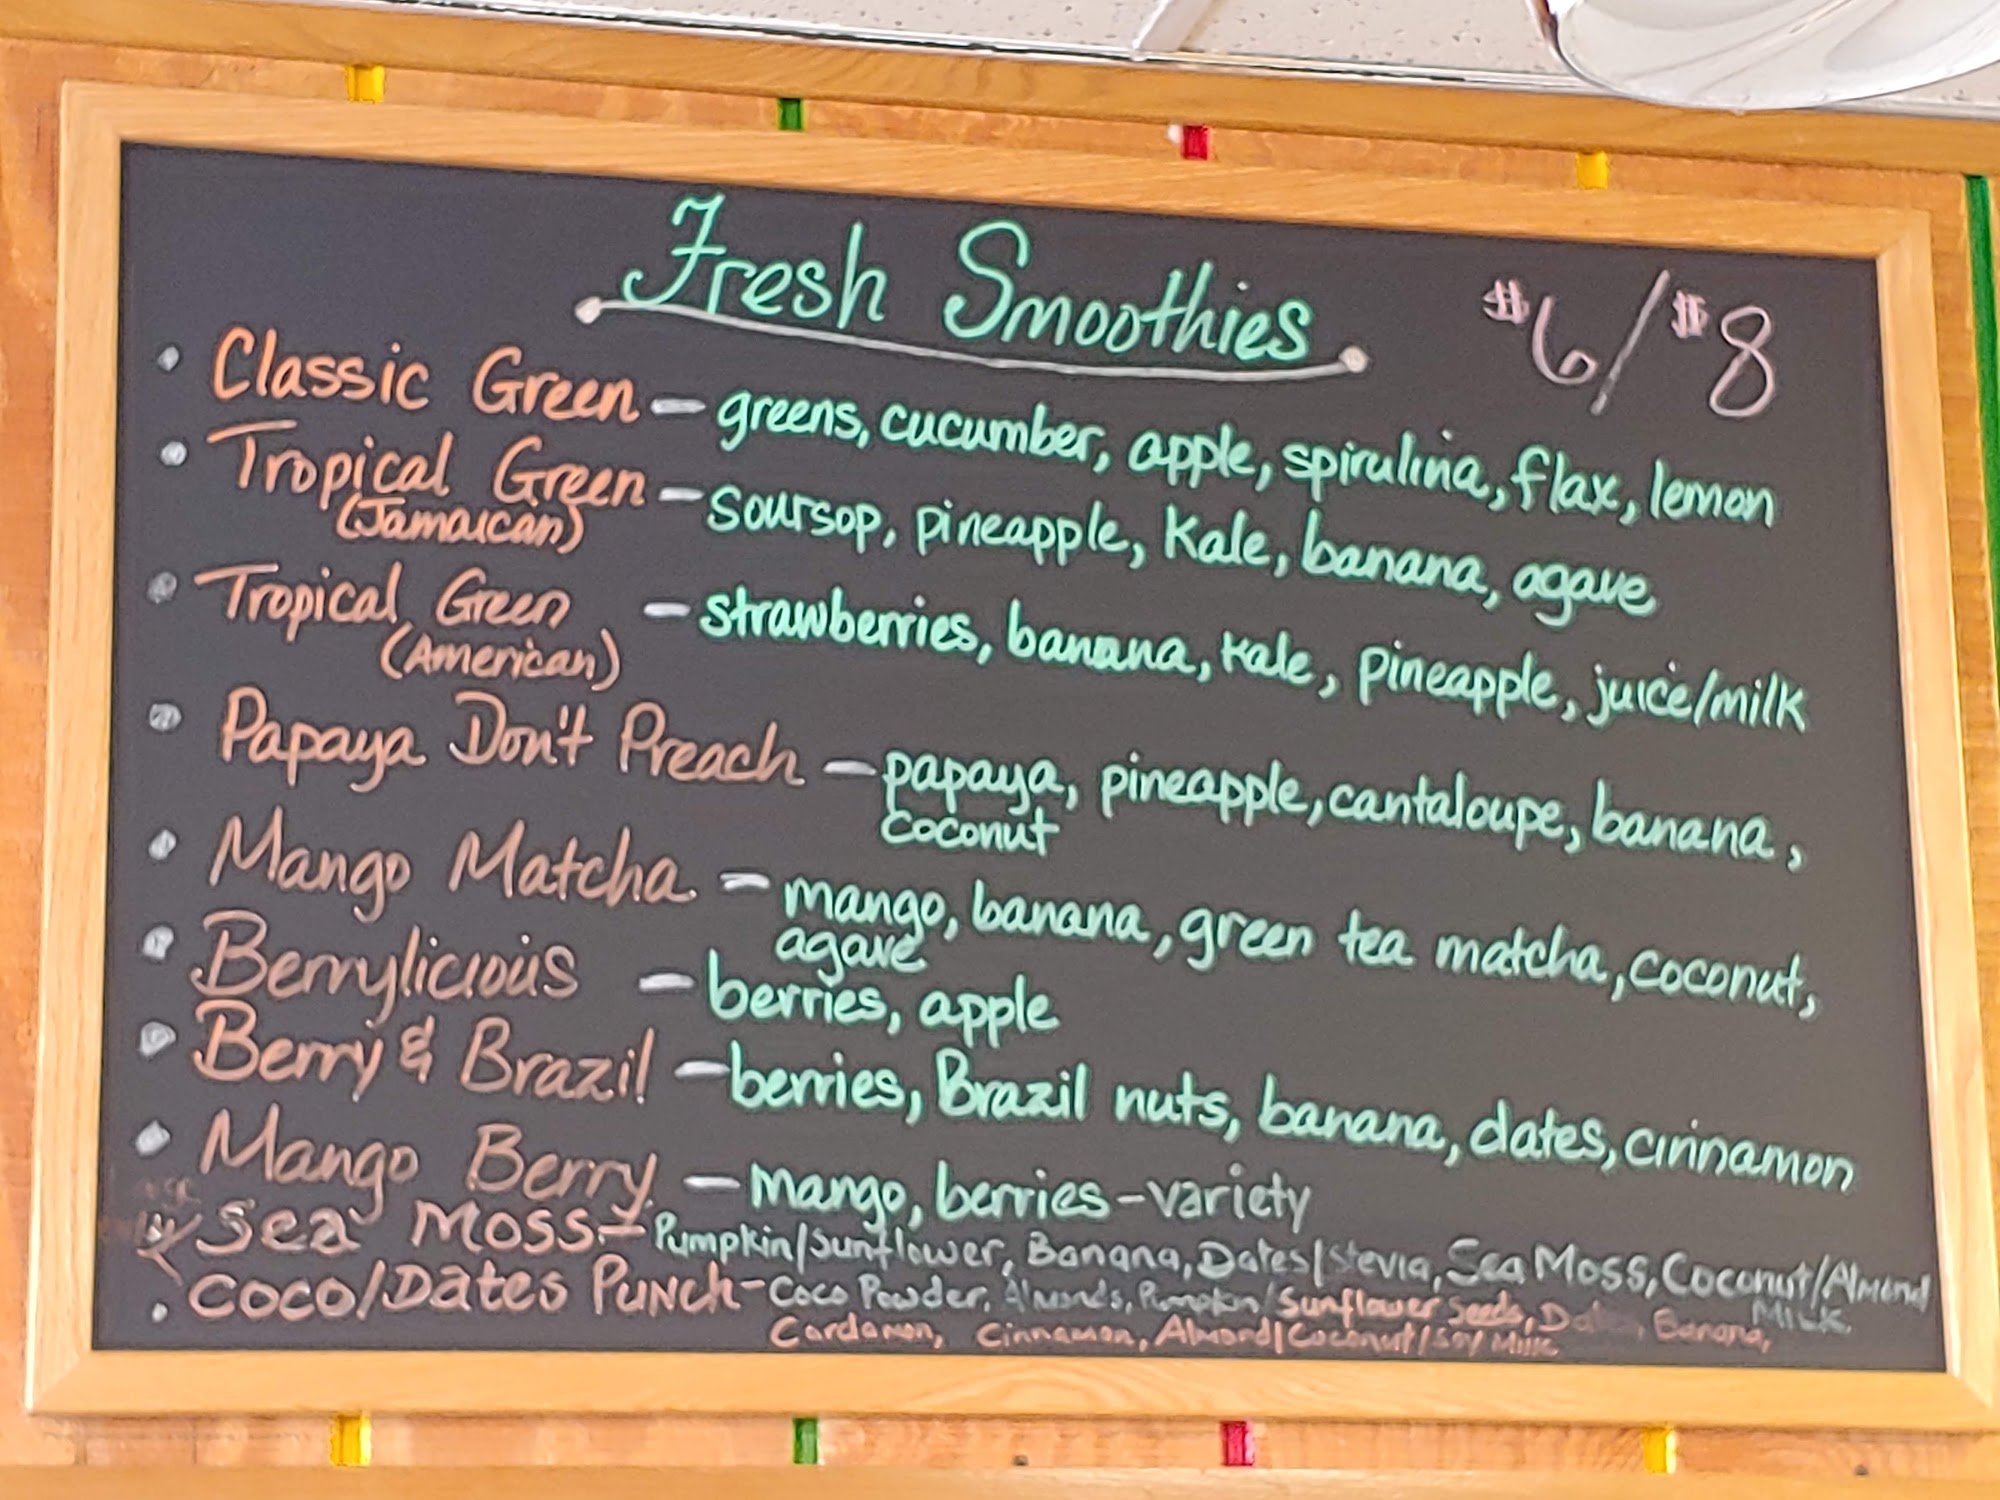 Fresh Smoothies $6/$8
Classic Green - greens, cucumber, apple, spirulina, flax, lemon
Tropical Green - soursop, pineapple, Kale, banana, agave
(Jamaican)
Tropical Green - strawberries, banana, kale, pineapple, juice/milk
(American)
Papaya Don't Preach - papaya, pineapple, cantaloupe, banana,
coconut
Mango Matcha - mango, banana, green tea matcha, coconut,
agave
Berrylicious - berries, apple
Berry & Brazil - berries, Brazil nuts, banana, dates, cinnamon
Mango Berry - mango, berries - variety
Sea Moss - Pumpkin/Sunflower, Banana, Dates/Stevia, Sea Moss, Coconut/Almond
Milk
Coco/Dates Punch - Coco Powder, Almonds, Pumpkin/Sunflower Seeds, Dates, Banana,
Cardamon, Cinnamon, Almond/Coconut/Soy Milk